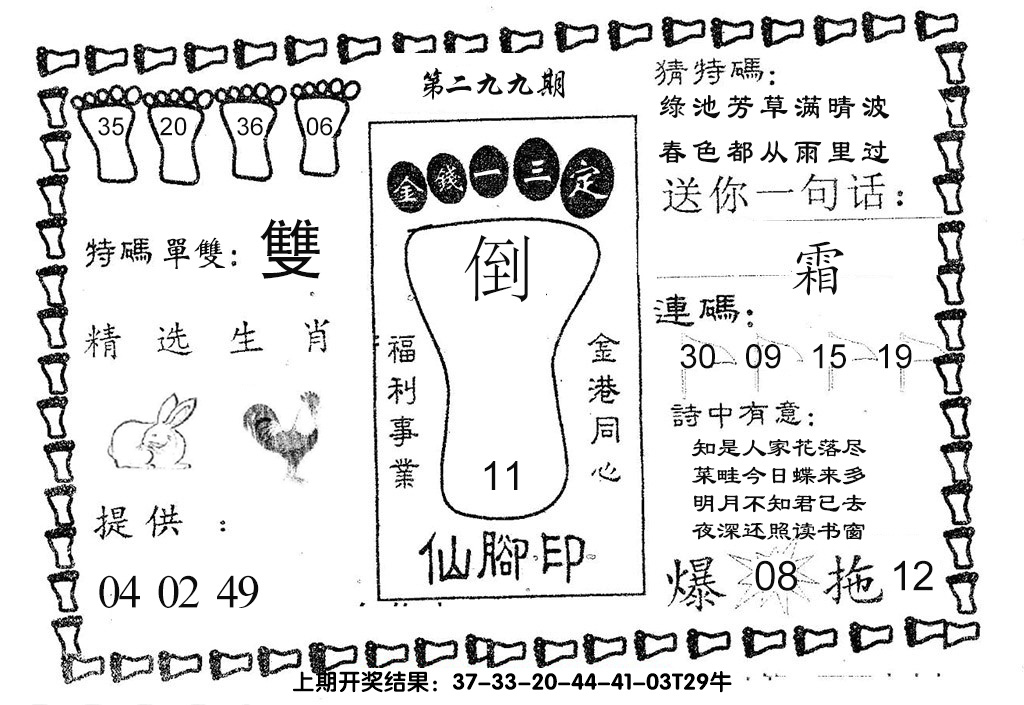 第二九九期
35 20 36 06
特碼單雙：雙
精选生肖
提供：
04 02 49
金錢一三定
倒
福利事業
金港同心
11
仙腳印
猜特碼：
綠池芳草满晴波
春色都从雨里过
送你一句话：
霜
連碼：
30 09 15 19
詩中有意：
知是人家花落尽
菜畦今日蝶来多
明月不知君已去
夜深还照读书窗
爆 08 拖 12
上期开奖结果：37-33-20-44-41-03T29牛